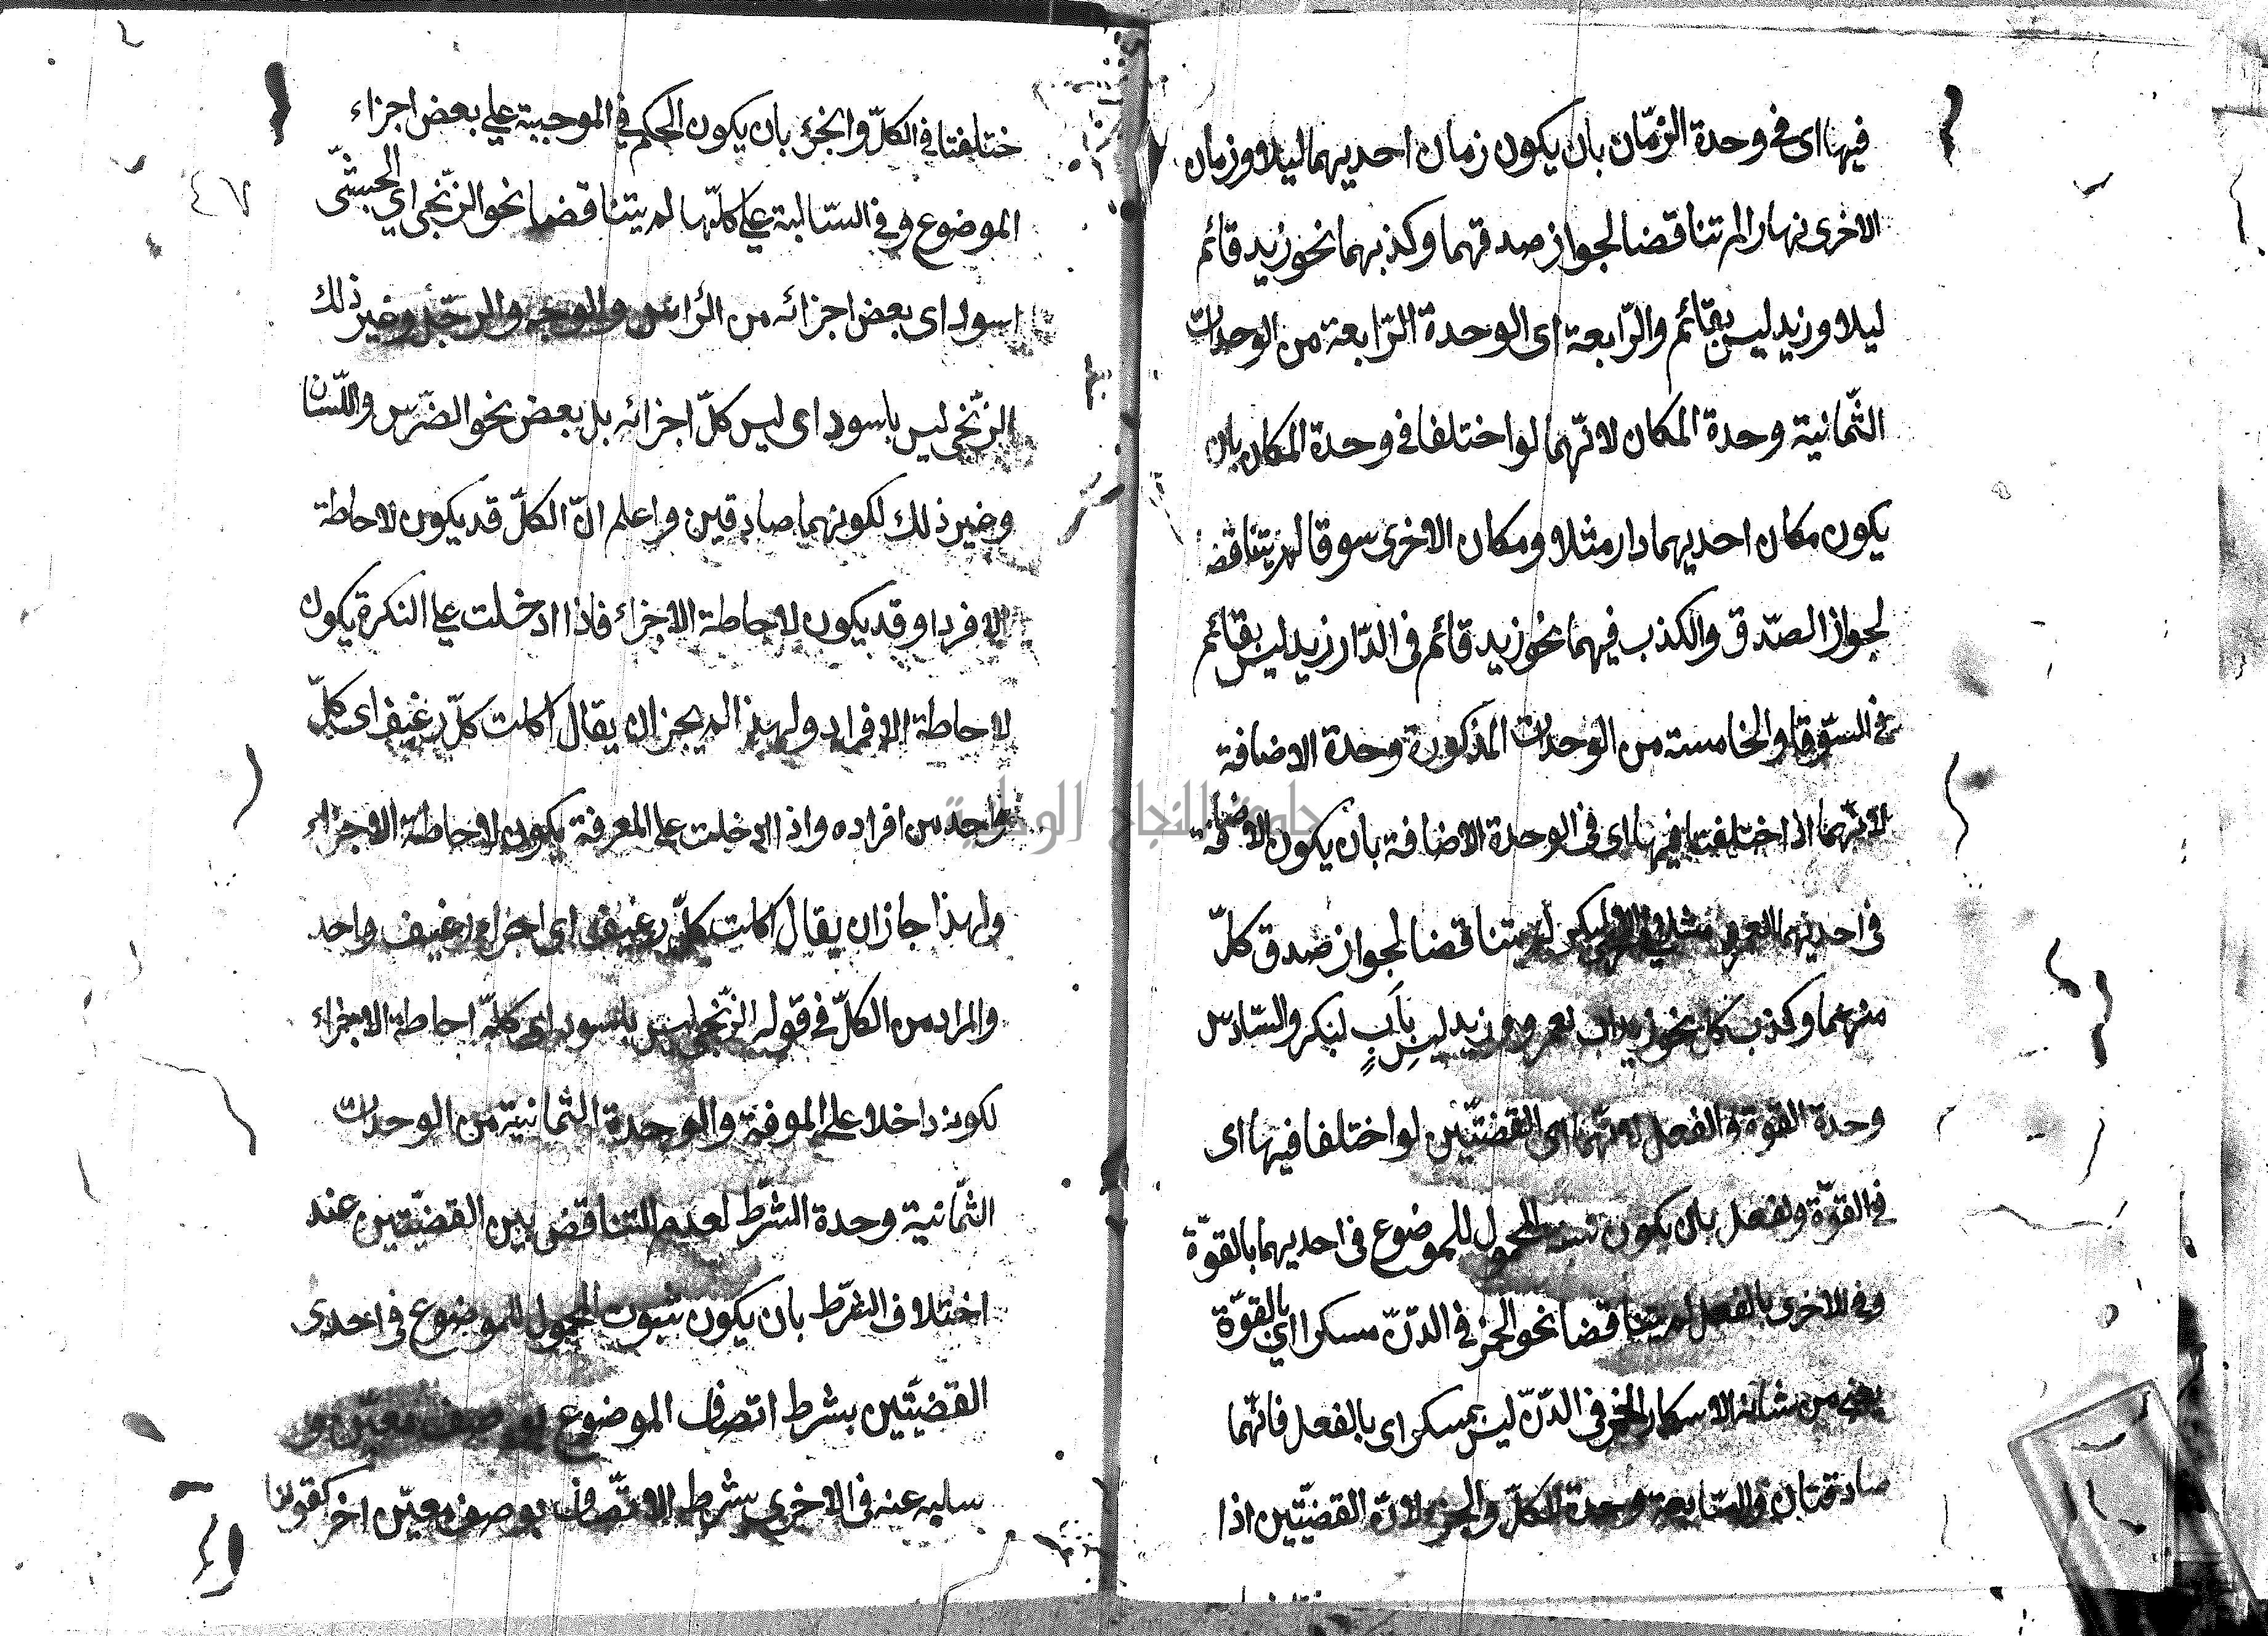 فيها اى فى وحدة الزّمان بان يكون زمان احديهما ليلا وزمان
الاخرى نهارا لم تناقضا لجواز صدقهما وكذبهما نحو زيد قائم
ليلا وزيد ليس بقائم والرّابعة اى الوحدة الرّابعة من الوحدات
الثّمانية وحدة المكان لانّهما لو اختلفا فى وحدة المكان بان
يكون مكان احديهما دار مثلا ومكان الاخرى سوقا لم يتناقضا
لجواز الصّدق والكذب فيهما نحو زيد قائم فى الدّار زيد ليس بقائم
فى السّوق والخامسة من الوحدات المذكورة وحدة الاضافة
لانّهما اذا اختلفتا فيها اى فى الوحدة الاضافة بان يكون الاضافة
فى احديهما لعمرو مثلا لبكر لم يتناقضا لجواز صدق كلّ
منهما وكذب كل نحو زيد اب لعمرو وزيد ليس باَبٍ لبكر والسّادس
وحدة القوّة والفعل لانّهما اى القضيّتين لو اختلفا فيها اى
فى القوّة ولفعل بان يكون المحمول للموضوع فى احديهما بالقوّة
وفى الاخرى بالفعل لم يتناقضا نحو الخمر فى الدّنّ مسكر اى بالقوّة
يعنى من شانه الاسكار الخمر فى الدّنّ ليس بمسكر اى بالفعل فانّهما
صادقتان والسّابعة وحدة الكلّ والجزء لانّ القضيّتين اذا
ختلفتا فى الكلّ والجزء بان يكون الحكم فى الموجبة على بعض اجزاء
الموضوع وفى السّالبة على كلّها لم يتناقضا نحو الزّنجى اى الحبشّى
اسود اى بعض اجزائه من الرأس والوجه والرجل وغير ذلك
الزّنجى ليس باسود اى ليس كلّ اجزائه بل بعض نحو الضّرس واللّسان
وغير ذلك لكونهما صادقين واعلم انّ الكلّ قد يكون لاحاطة
الافراد وقد يكون لاحاطة الاجزاء فاذا ادخلت على النكرة يكون
لاحاطة الافراد ولهذا لم يجز ان يقال اكلت كلّ رغيف اى كلّ
واحد من افراده واذا ادخلت على المعرفة يكون لاحاطة الاجزاء
ولهذا جاز ان يقال اكلت كلّ رغيف اى اجزاء رغيف واحد
والمراد من الكلّ فى قوله الزّنجى ليس باسود اى كلّه احاطة الاجزاء
لكونه داخلا على الموفة والوحدة الثمانية من الوحدات
الثّمانية وحدة الشّرط لعدم التناقض بين القضيّتين عند
اختلاف الشّرط بان يكون ثبوت المحمول للموضوع فى احدى
القضيّتين بشرط اتصاف الموضوع بوصف معيّن و
سلبه عنه فى الاخرى بشرط الاتّصاف بوصف معيّن اخر كقولنا
٤٧
جامعة النجاح الوطنية